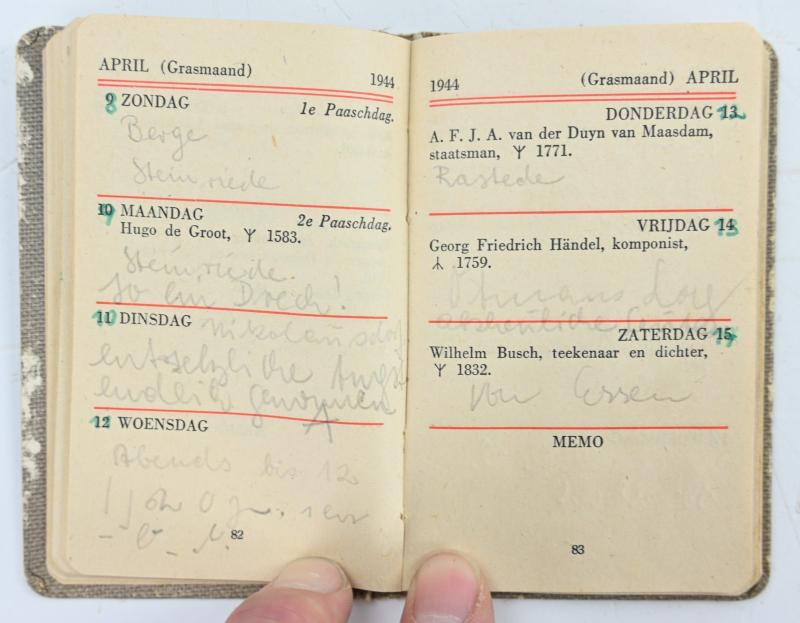 APRIL (Grasmaand) 1944
9 ZONDAG 1e Paaschdag.
8
Berge
Steinriede
10 MAANDAG 2e Paaschdag.
9
Hugo de Groot, ᛉ 1583.
Steinriede
So ein Dreck!
11 DINSDAG
10
Nikolausdorf
entsetzliche Angst
endlich genommen
12 WOENSDAG
11
Abends bis 12
82
1944 (Grasmaand) APRIL
DONDERDAG 13
12
A. F. J. A. van der Duyn van Maasdam,
staatsman, ᛉ 1771.
Rastede
VRIJDAG 14
13
Georg Friedrich Händel, komponist,
ᛦ 1759.
ZATERDAG 15
14
Wilhelm Busch, teekenaar en dichter,
ᛉ 1832.
von Essen
MEMO
83